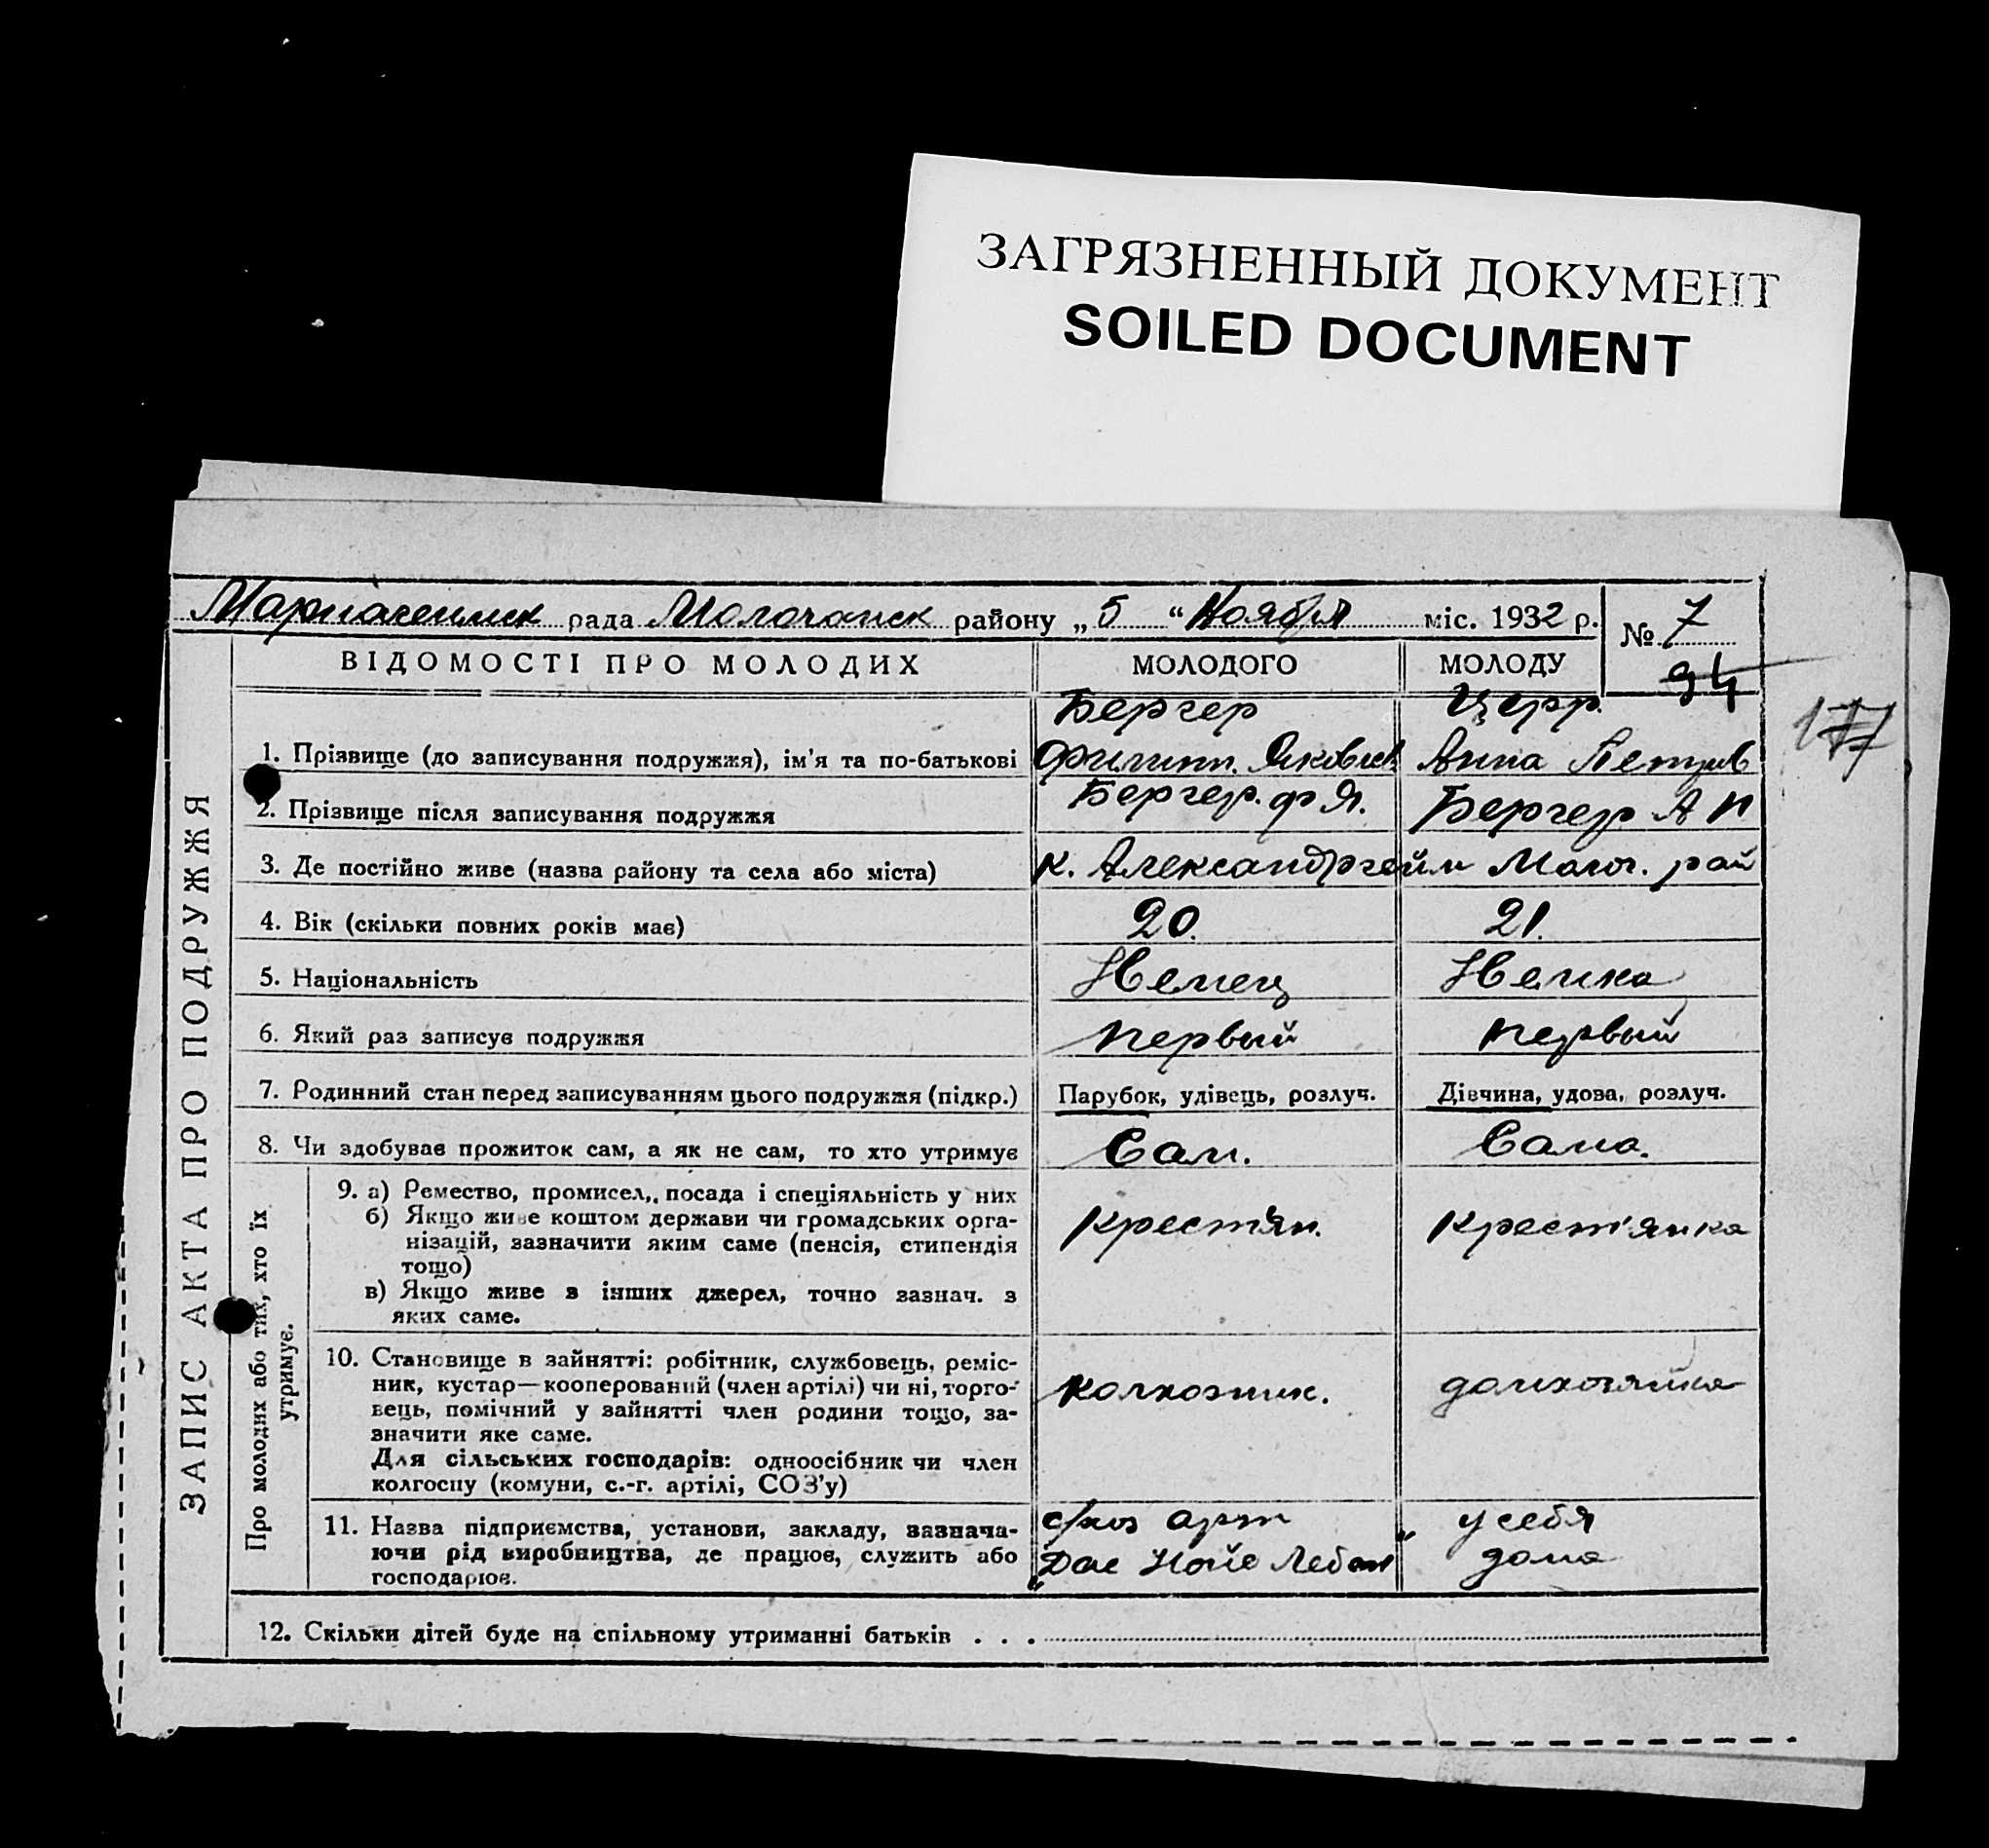 ЗАГРЯЗНЕННЫЙ ДОКУМЕНТ
SOILED DOCUMENT
рада Молочанск району „5“ Ноября міс. 1932 р. № 7
94
177
ЗАПИС АКТА ПРО ПОДРУЖЖЯ
ВІДОМОСТІ ПРО МОЛОДИХ МОЛОДОГО МОЛОДУ
Бергер Церр.
1. Прізвище (до записування подружжя), ім'я та по-батькові Филипп. Яковлев Анна Петров
2. Прізвище після записування подружжя Бергер. Ф Я. Бергер А П
3. Де постійно живе (назва району та села або міста) к. Александргейм Молоч. рай
4. Вік (скільки повних років має) 20. 21.
5. Національність Немец Немка
6. Який раз записує подружжя первый первый
7. Родинний стан перед записуванням цього подружжя (підкр.) Парубок, удівець, розлуч. Дівчина, удова, розлуч.
8. Чи здобуває прожиток сам, а як не сам, то хто утримує Сам. Сама.
Про молодих або тих, хто їх
утримує.
9. а) Ремество, промисел,. посада і спеціяльність у них
б) Якщо живе коштом держави чи громадських орга-
нізацій, зазначити яким саме (пенсія, стипендія
тощо)
в) Якщо живе з інших джерел, точно зазнач. з
яких саме.
Крестян. Крест'янка
10. Становище в зайнятті: робітник, службовець, реміс-
ник, кустар—кооперований (член артілі) чи ні, торго-
вець, помічний у зайнятті член родини тощо, за-
значити яке саме.
Для сільських господарів: одноосібник чи член
колгоспу (комуни, с.-г. артілі, СОЗ'у)
колхозник. домхозяйка
11. Назва підприємства, установи, закладу, зазнача-
ючи рід виробництва, де працює, служить або
господарює.
с/хоз арт у себя
„Дас Нойе Лебен" дома
12. Скільки дітей буде на спільному утриманні батьків . . .